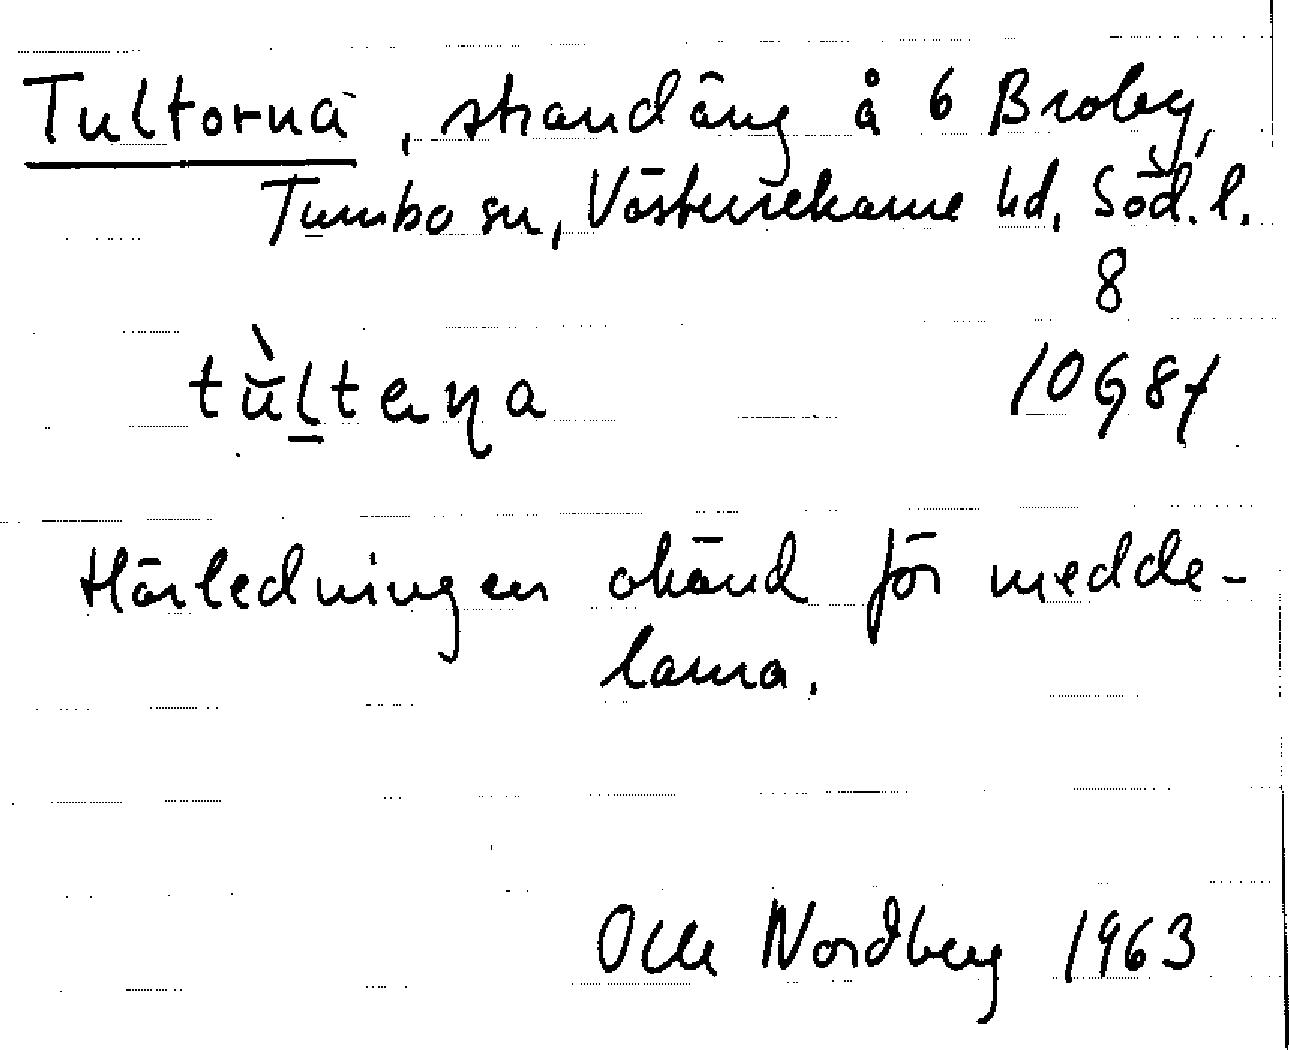 Tultorna, strandäng å 6 Broby,
Tumbo sn, Västerrekarne hd, Söd. l.
8
tùltena 10G8f
Härledningen okänd för medde-
larna.
Olle Nordberg 1963